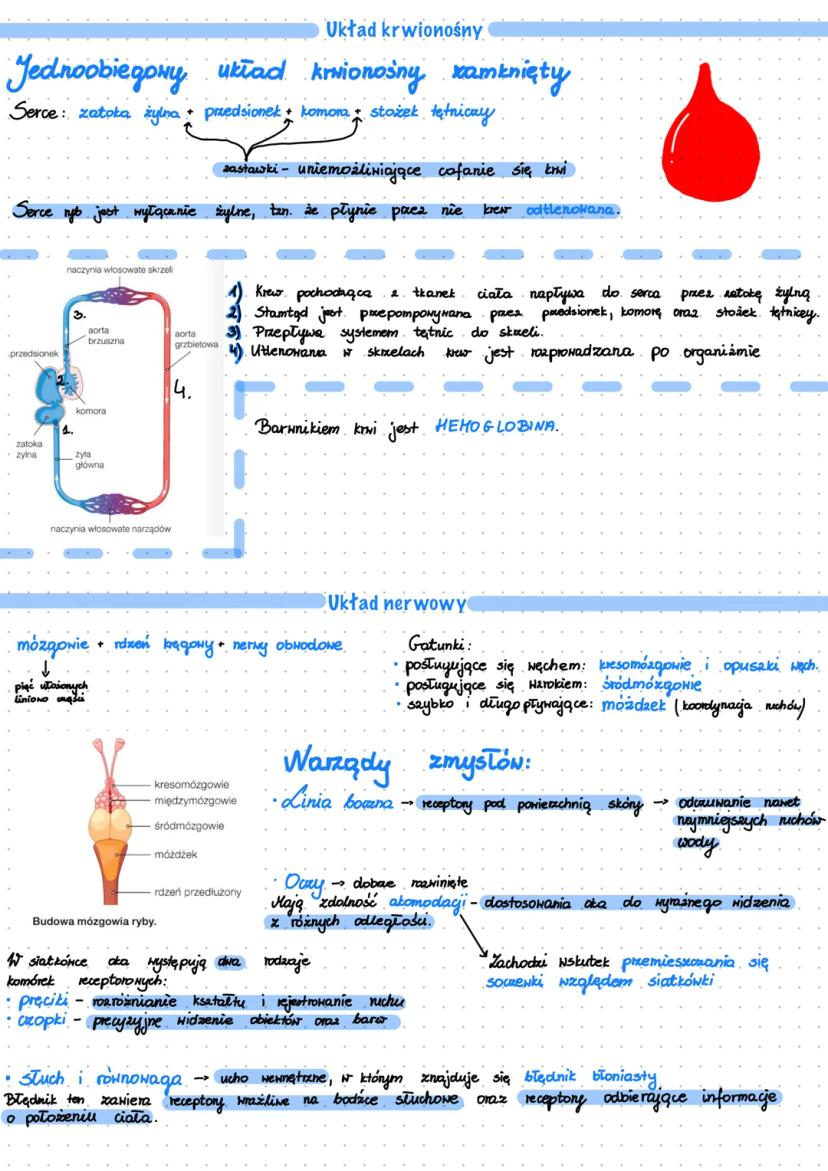 Układ krwionośny
Jednoobiegowy układ krwionośny zamknięty
Serce: zatoka żylna + przedsionek + komora + stożek tętniczy
zastawki - uniemożliwiające cofanie się krwi
Serce ryb jest wyłącznie żylne, tzn. że płynie przez nie krew odtlenowana.
naczynia włosowate skrzeli
3.
aorta
brzuszna
aorta
grzbietowa
przedsionek
2.
4.
komora
1.
zatoka
żylna
żyła
główna
naczynia włosowate narządów
1) Krew pochodząca z tkanek ciała napływa do serca przez zatokę żylną
2) Stamtąd jest przepompowywana przez przedsionek, komorę oraz stożek tętniczy.
3) Przepływa systemem tętnic do skrzeli.
4) Utlenowana w skrzelach krew jest rozprowadzana po organizmie
Barwnikiem krwi jest HEMOGLOBINA.
Układ nerwowy
mózgowie + rdzeń kręgowy + nerwy obwodowe
pięć ułożonych
liniowo części
Gatunki:
• posługujące się węchem: kresomózgowie i opuszki węch.
• posługujące się wzrokiem: śródmózgowie
• szybko i długo pływające: móżdżek (koordynacja ruchów)
kresomózgowie
międzymózgowie
śródmózgowie
móżdżek
rdzeń przedłużony
Budowa mózgowia ryby.
Narządy zmysłów:
• Linia boczna → receptory pod powierzchnią skóry → odczuwanie nawet
najmniejszych ruchów
wody
• Oczy → dobrze rozwinięte
Mają zdolność akomodacji - dostosowania oka do wyraźnego widzenia
z różnych odległości.
Zachodzi wskutek przemieszczania się
soczewki względem siatkówki
W siatkówce oka występują dwa rodzaje
komórek receptorowych:
• pręciki - rozróżnianie kształtu i rejestrowanie ruchu
• czopki - precyzyjne widzenie obiektów oraz barw
• Słuch i równowaga → ucho wewnętrzne, w którym znajduje się błędnik błoniasty
Błędnik ten zawiera receptory wrażliwe na bodźce słuchowe oraz receptory odbierające informacje
o położeniu ciała.